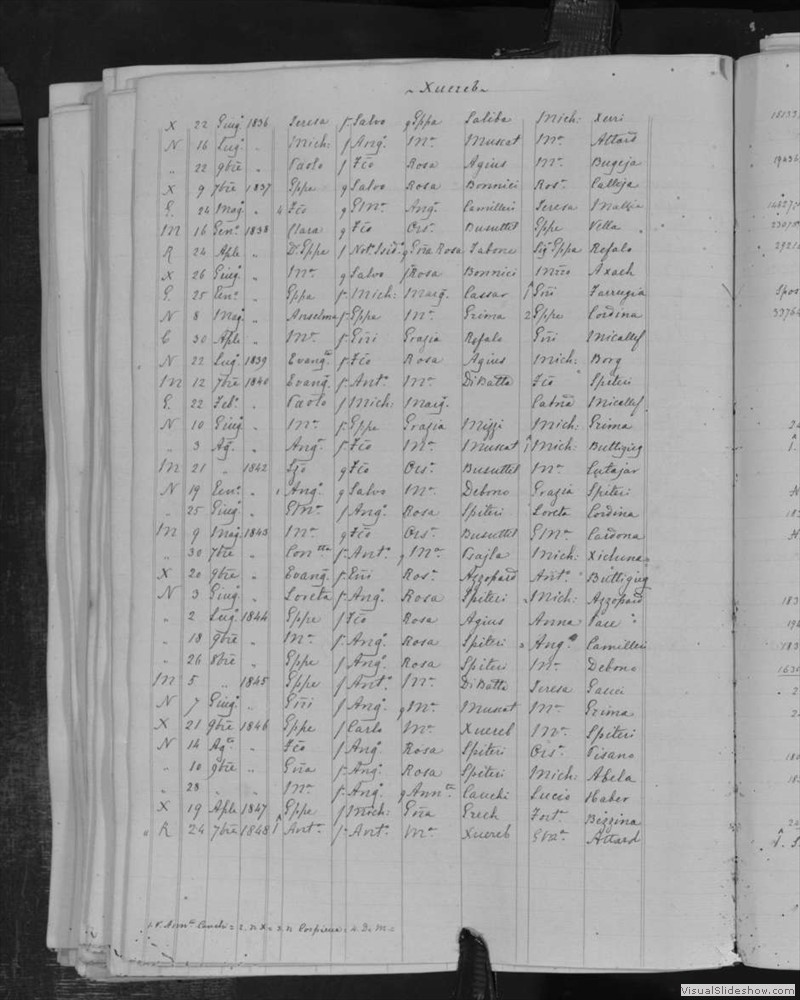 ~ Xuereb ~
X 22 Giug. 1836 Teresa f. Salvo q Gppa Saliba Mich: Xuri
N 16 Lug. " Mich: f Ang. Mª Muscat Mª Attard
" 22 9bre " Paolo f Fco Rosa Agius Mª Bugeja
X 9 7bre 1837 Gppe q Salvo Rosa Bonnici Rosª Calleja
G. 24 Mag. " 4 Fco q GMª Ang. Camilleri Teresa Mallia
M 16 Genº 1838 Clara q Fco Orsª Busuttil Gppe Vella
R 24 Aple " D. Gppa f Not. Isid. q Gña Rosa Tabone Sig. Gppa Refalo
X 26 Giug. " Mª q Salvo f Rosa Bonnici Axach
G. 25 Genº " Gppa f. Mich: Marg. Cassar 1 Gñi Farrugia
N 8 Mag. " Anselma f. Gppe Mª Grima 2 Gppe Cordina
C 30 Aple " Mª f. Gñi Grazia Refalo Gñi Micallef
N 22 Lug. 1839 Evang. f. Fco Rosa Agius Mich: Borg
M 12 7bre 1840 Evang. f. Antº Mª DiBatta Fco Spiteri
G. 22 Febº " Paolo f Mich: Marg. Catrña Micallef
N 10 Giug. " Mª f. Gppe Grazia Mizzi Mich: Grima
" 3 Ag. " Ang. f. Fco Mª Muscat 1 Mich: Buttigieg
M 21 " 1842 q Fco Orsª Busuttil Mª Cutajar
N 19 Genº " 1 Ang. q Salvo Mª Debono Grazia Spiteri
" 25 Giug. " GMª f Ang. Rosa Spiteri Loreta Cordina
M 9 Mag. 1843 Mª q Fco Orsª Busuttil GMª Cardona
" 30 7bre " Contta f. Antº q Mª Psajla Mich: Xicluna
X 20 9bre " Evang. f. Gñi Rosª Azzopard Antª Buttigieg
N 3 Giug. " Loreta f. Ang. Rosa Spiteri Mich: Azzopard
" 2 Lug. 1844 Gppe f Fco Rosa Agius Anna Pace
" 18 9bre " Mª f. Ang. Rosa Spiteri Ang. Camilleri
" 26 8bre " Gppe f Ang. Rosa Spiteri Mª Debono
M 5 " 1845 Gppe f Antº Mª DiBatta Teresa Gauci
N 7 Giug. " Gñi f Ang. q Mª Muscat Mª Grima
X 21 9bre 1846 Gppe f Carlo Mª Xuereb Mª Spiteri
N 14 Agto " Fco f Ang. Rosa Spiteri Orsª Pisano
" 10 9bre " Gña f. Ang. Rosa Spiteri Mich: Abela
" 28 " Mª f. Ang. q Annta Cauchi Lucio Haber
X 19 Aple 1847 Gppe f Mich: Gña Grech Fortª Bezzina
R 24 7bre 1848 1 Antª f. Antº Mª Xuereb GMª Attard
VisualSlideshow.com